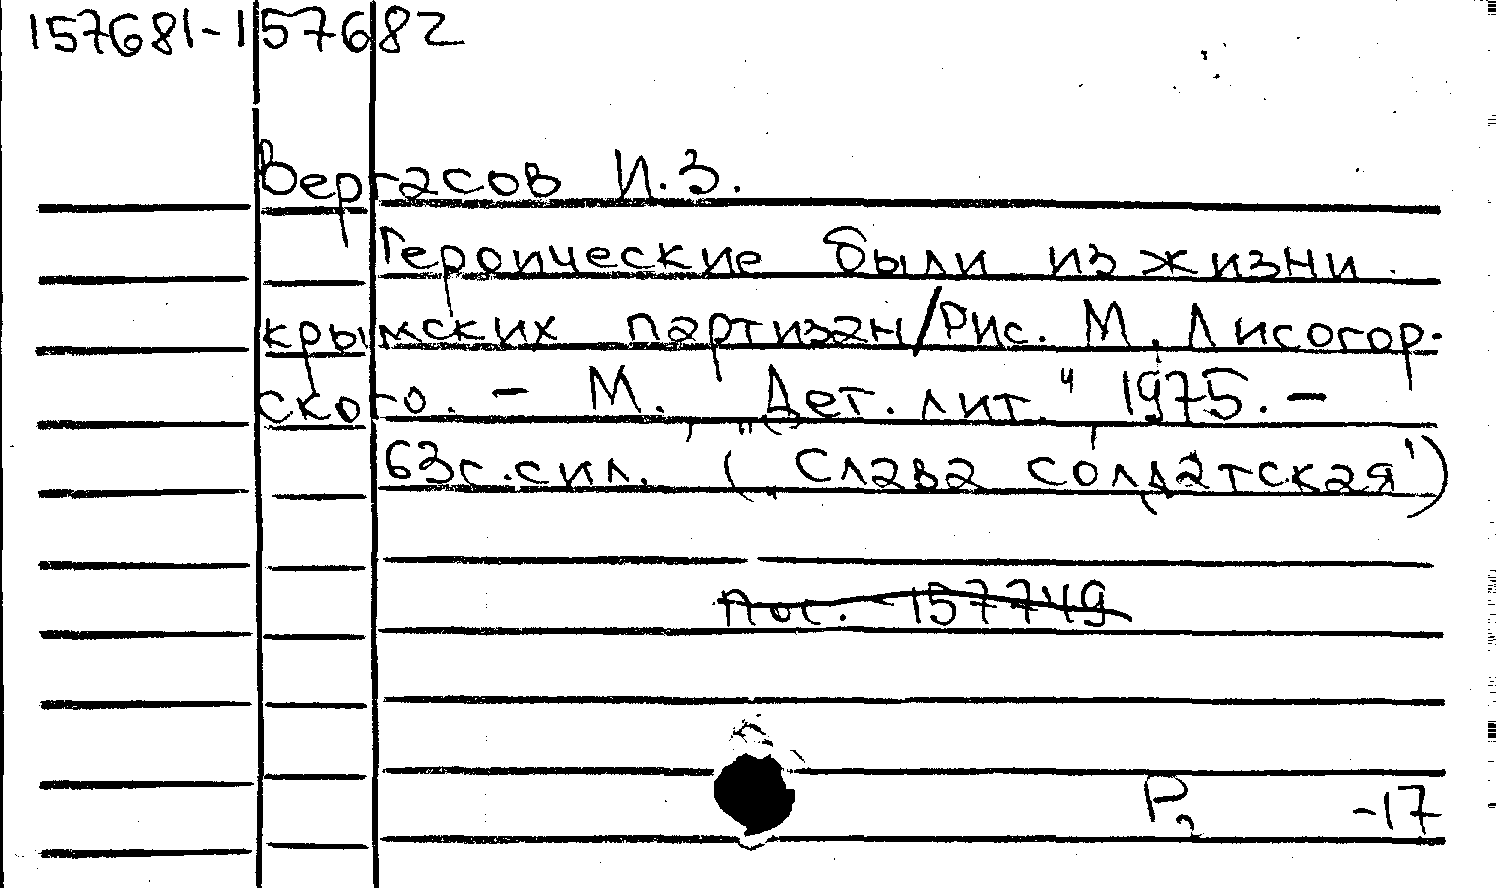 157681-157682
Вергасов И.З.
Героические были из жизни
крымских партизан/Рис. М. Лисогор-
ского. - М. "Дет. лит." 1975. -
63с.сил. („Слава солдатская")
пос. - 157749
Р2 -17